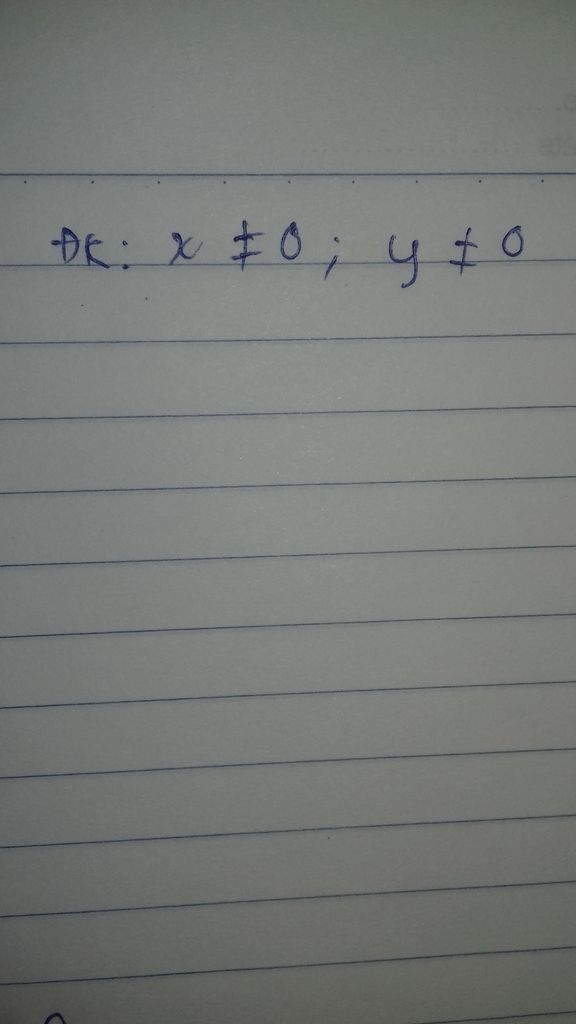 ĐK: x ≠ 0; y ≠ 0